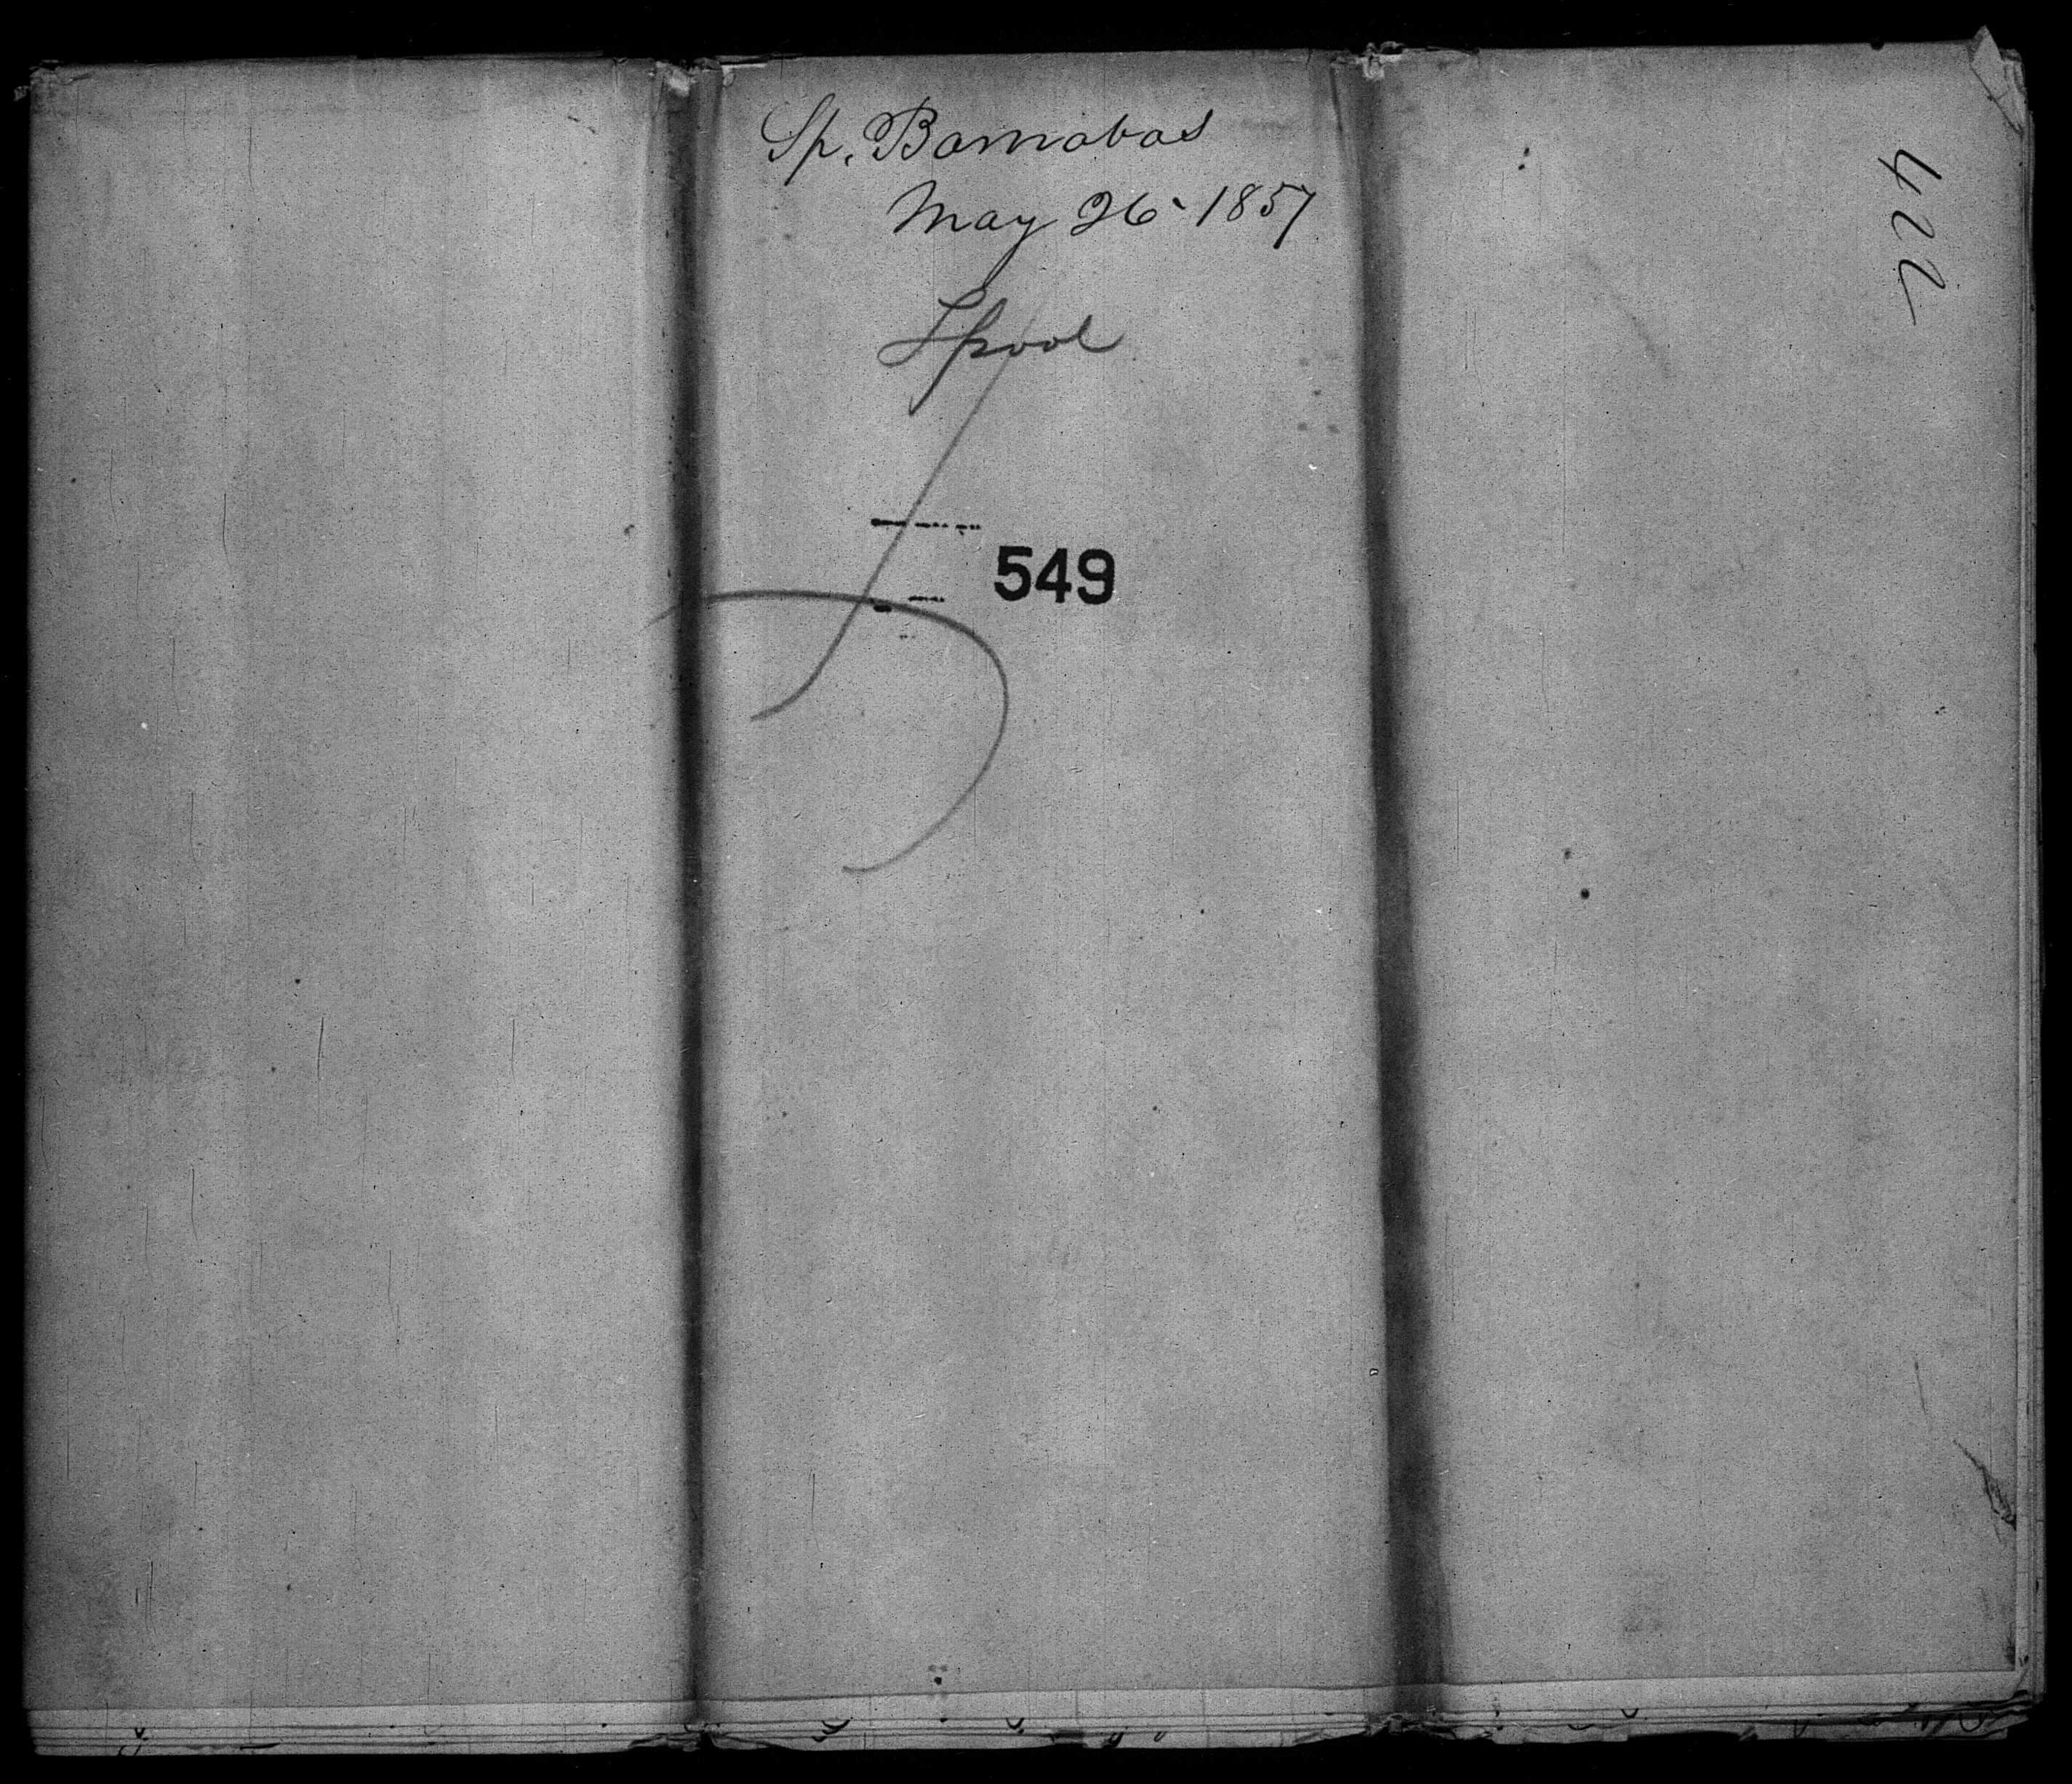 Sp. Barnabas
May 26 - 1857
Lpool
549
422